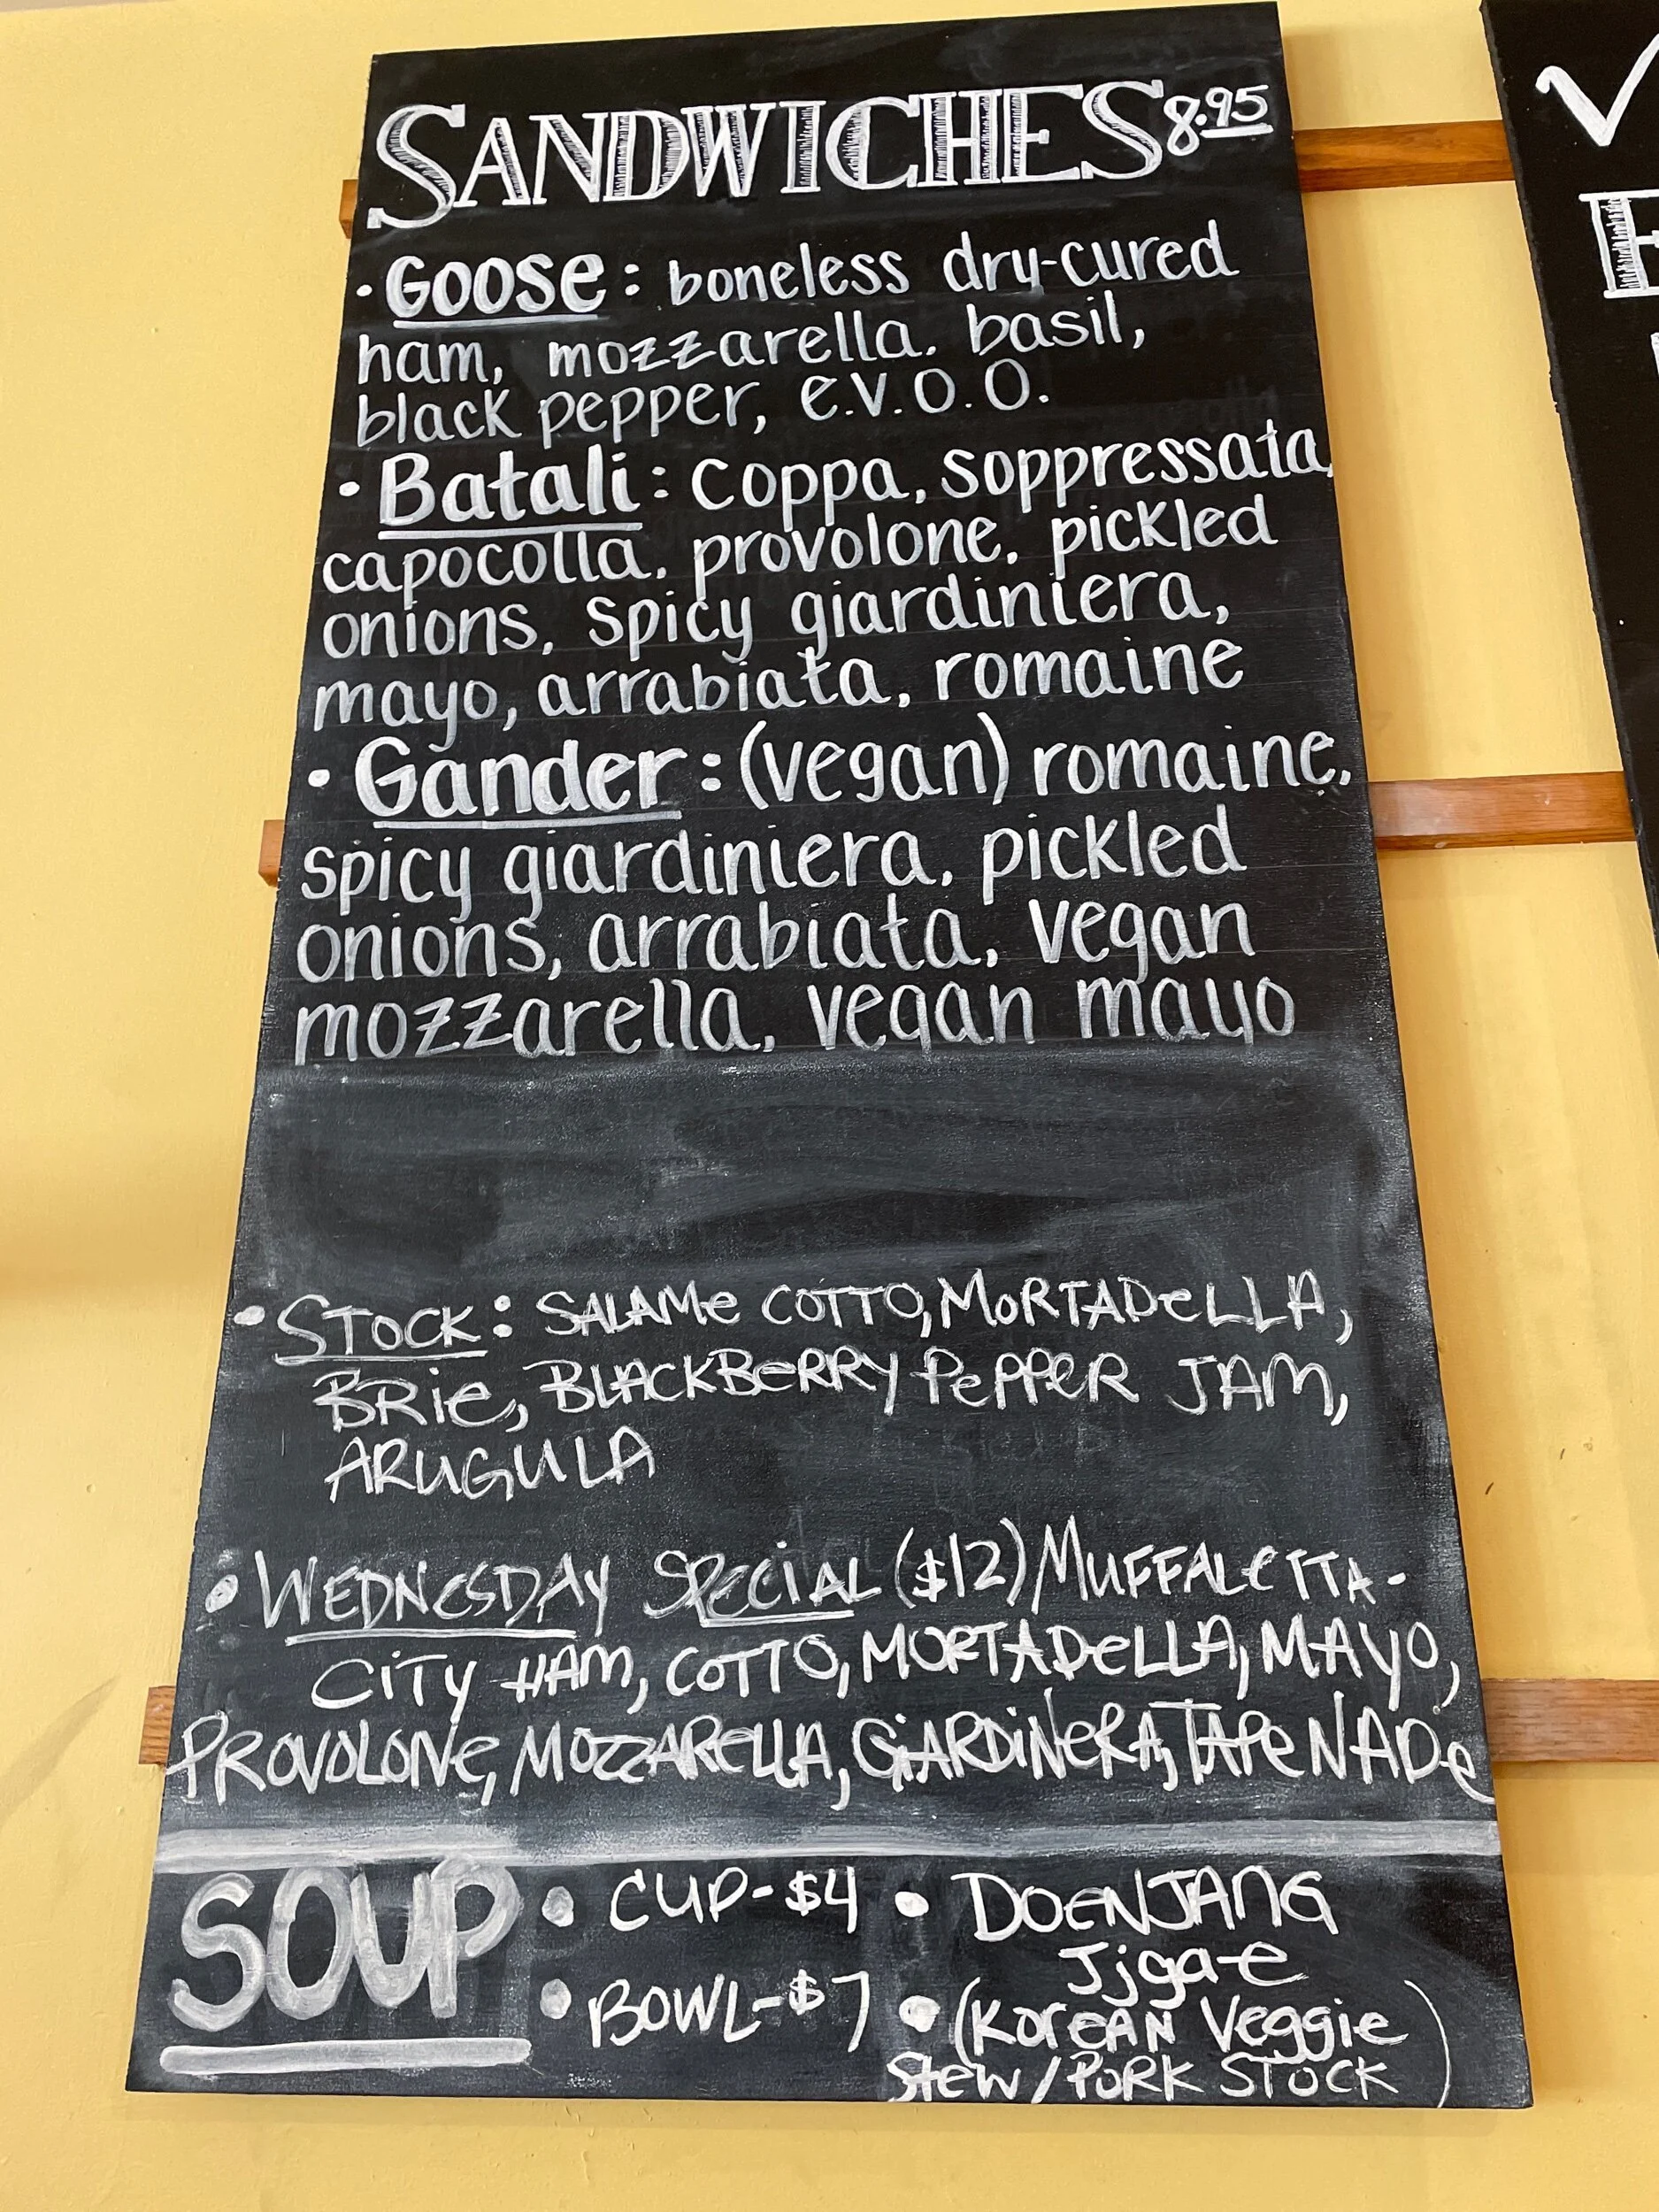 SANDWICHES 8.95
· Goose: boneless dry-cured
ham, mozzarella, basil,
black pepper, e.v.o.o.
· Batali: coppa, soppressata,
capocolla, provolone, pickled
onions, spicy giardiniera,
mayo, arrabiata, romaine
· Gander: (vegan) romaine,
spicy giardiniera, pickled
onions, arrabiata, vegan
mozzarella, vegan mayo
• STOCK: SALAMe COTTO, MORTADeLLA,
BRie, BLACKBeRRY PePPeR JAM,
ARUGULA
• WEDNeSDAY SPECiAL ($12) MUFFALeTTA-
CiTY HAM, COTTO, MORTADeLLA, MAYO,
PROVOLONe, MOZZARELLA, GiARDiNeRA, TAPeNADe
SOUP • CUP-$4 • DOENJANG
Jjgae
• BOWL-$7 • (KoreAN Veggie
Stew/PORK STOCK)